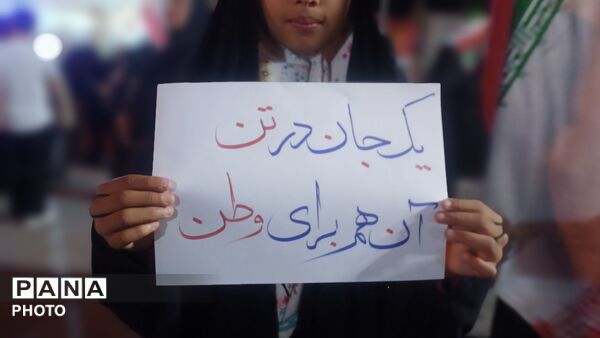 یک جان در تن
آن هم برای وطن
PANA
PHOTO